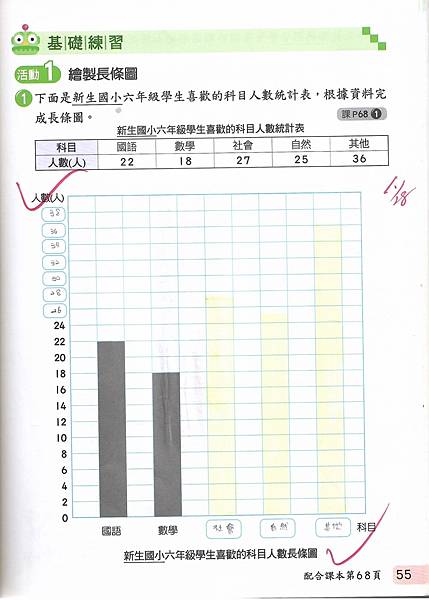 基礎練習
活動1 繪製長條圖
1 下面是新生國小六年級學生喜歡的科目人數統計表，根據資料完
成長條圖。
課P68 1
新生國小六年級學生喜歡的科目人數統計表
科目 國語 數學 社會 自然 其他
人數(人) 22 18 27 25 36
人數(人)
38
36
34
32
30
28
26
24
22
20
18
16
14
12
10
8
6
4
2
0
國語 數學 社會 自然 其他 科目
新生國小六年級學生喜歡的科目人數長條圖
配合課本第68頁 55